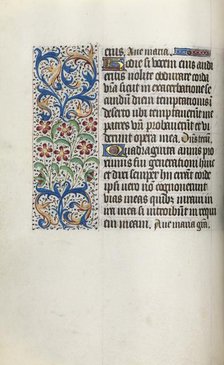 eius. Aue maria.
Hodie si vocem eius audi
eritis nolite obdurare corda
vestra sicut in exacerbatione se
cundum diem temptationis in
deserto ubi temptauerunt me
patres vri probauerunt et vi
derunt opera mea. Dns tecu.
Quadraginta annis prox
imus fui generationi huic
et dixi semper hii errant corde
ipsi vero non cognouerunt
vias meas quibz iuraui in
ira mea si introibunt in requi
em meam. Aue maria gra.